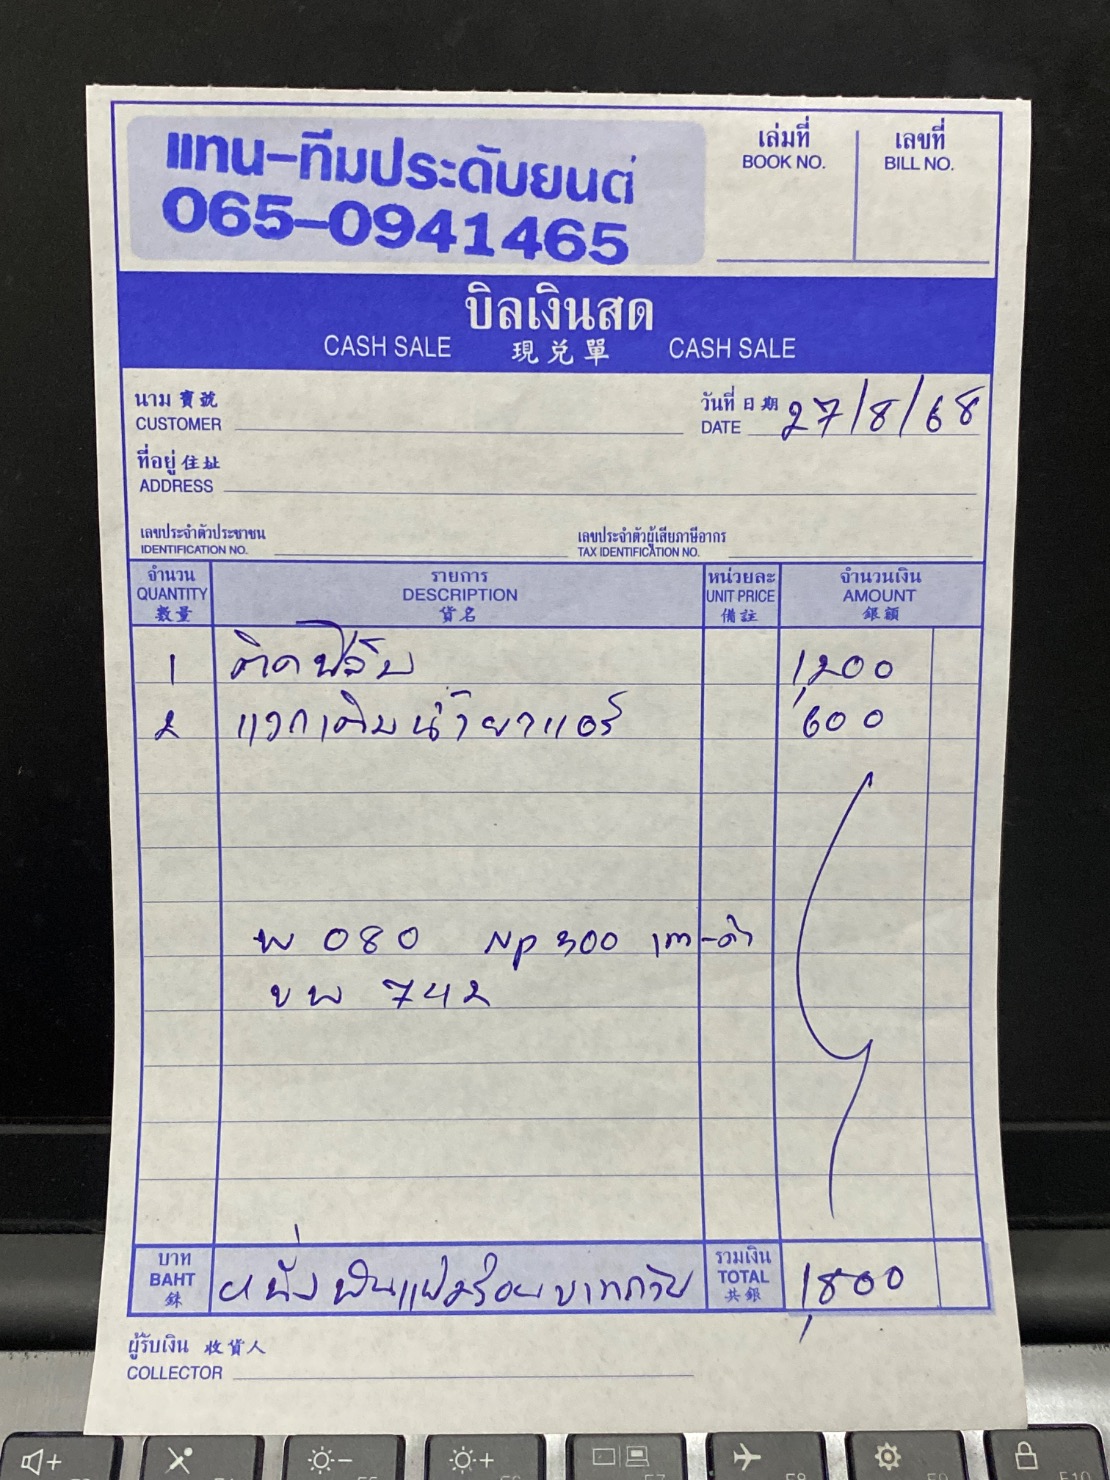 แทน-ทีมประดับยนต์
065-0941465
เล่มที่ เลขที่
BOOK NO. BILL NO.
บิลเงินสด
CASH SALE 現兌單 CASH SALE
นาม 寶號 วันที่ 日期
CUSTOMER DATE 27/8/68
ที่อยู่ 住址
ADDRESS
เลขประจำตัวประชาชน เลขประจำตัวผู้เสียภาษีอากร
IDENTIFICATION NO. TAX IDENTIFICATION NO.
จำนวน รายการ หน่วยละ จำนวนเงิน
QUANTITY DESCRIPTION UNIT PRICE AMOUNT
數量 貨名 備註 銀額
1 ติดฟิล์ม 1,200
2 แวคเติมน้ำยาแอร์ 600
พ 080 Np 300 เทา-ดำ
ขพ 742
บาท รวมเงิน
BAHT หนึ่งพันแปดร้อยบาทถ้วน TOTAL 1,800
銖 共銀
ผู้รับเงิน 收貨人
COLLECTOR